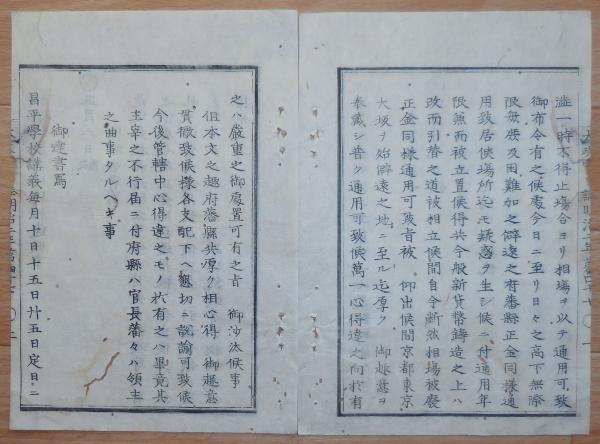 澁一時不得止場合ヨリ相場ヲ以テ通用可致
御布令有之候處今日ニ至リ日々之高下無際
限無及困難加之僻遠之府藩縣正金同様通
用致居候場所迠モ疑惑ヲ生シ候ニ付通用年
限無而被立置候得共今般新貨幣鋳造之上ハ
改而引替之道被相立候間自今断然相場被廢
正金同様通用可致旨被 仰出候間京都東京
大坂ヲ始僻遠之地ニ至ル迠厚ク 御趣意ヲ
奉戴シ普ク通用可致候萬一心得違之向於有
之ハ嚴重之御處置可有之旨 御沙汰候事
但本文之趣府藩縣共厚ク相心得 御趣意
貫徹致候様各支配下ヘ懇切ニ説諭可致候
今後管轄中心得違之モノ於有之ハ畢竟其
主宰之不行届ニ付府縣ハ官長藩々ハ領主
之曲事タルヘキ事
御達書寫
昌平學校講義毎月十日十五日廿五日定日ニ